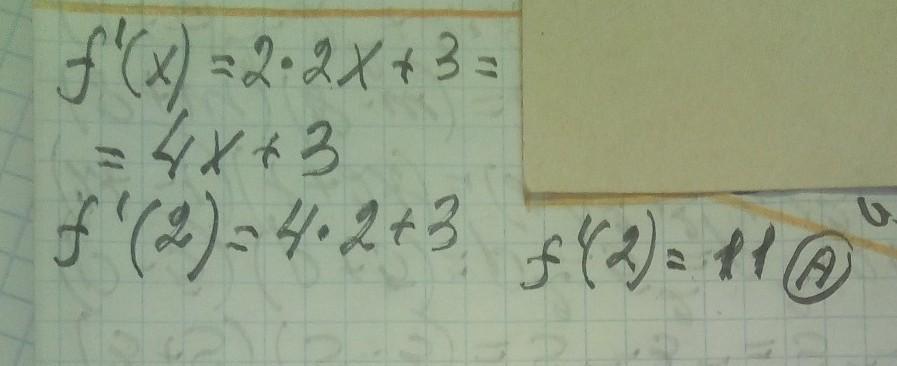 f'(x) = 2·2x + 3 =
= 4x + 3
f'(2) = 4·2 + 3
f'(2) = 11 A